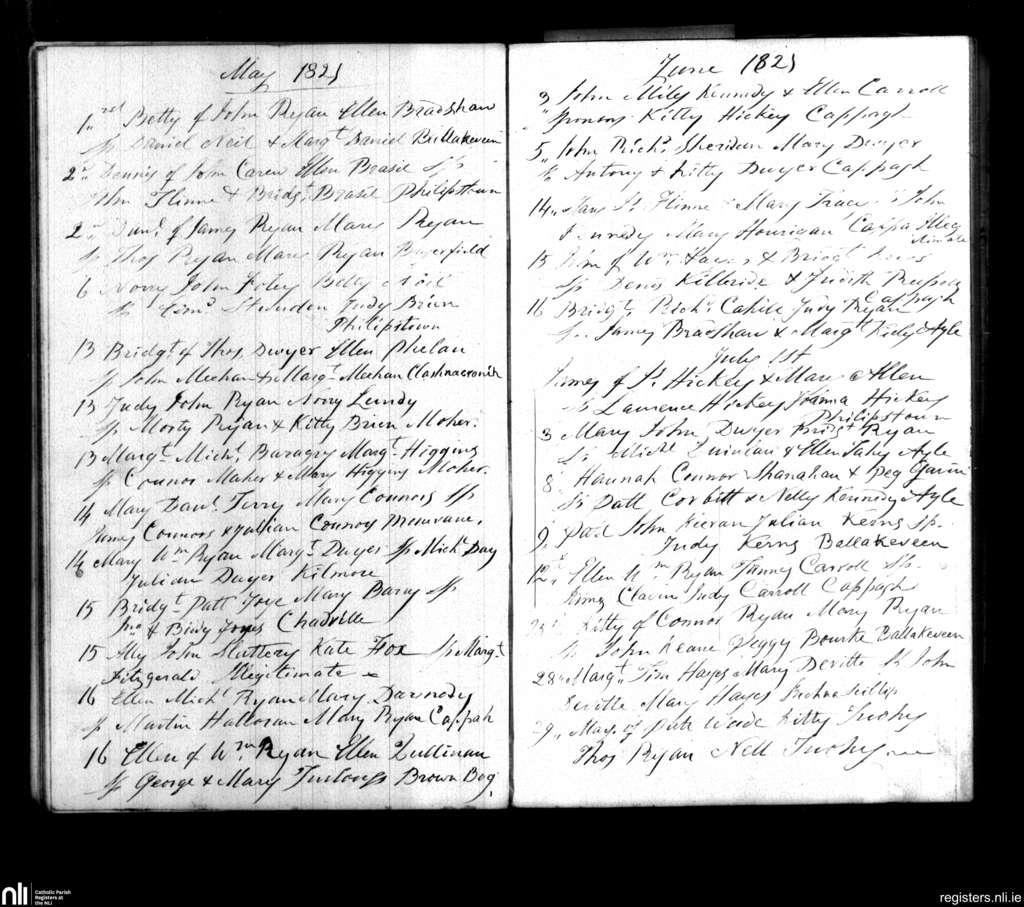 May 1821
1st Betty of John Ryan & Ellen Bradshaw
Sp Daniel Neil & Margt Daniel Ballakeveen
2nd Dennis of John Carew Ellen Brasil Sps
Wm Flinne & Bridgt Brasil Philipstown
2nd Danl of James Ryan Mary Ryan
Sp Thos Ryan Mary Ryan
6 Norry John Foley Betty
Sp Judy Brien
Philipstown
13 Bridgt of Thos Dwyer Ellen Phelan
Sp John Meehan & Margt Meehan Clashnacronih
13 Judy John Ryan Norry Lundy
Sp Morty Ryan & Kitty Brien Moher.
13 Margt Michl Baragry Margt Higgins
Sp Connor Maher & Mary Higgins Moher.
14 Mary Danl Terry Mary Connors Sp
James Connors & Jullian Connors
14 Mary Wm Ryan Margt Dwyer Sp Michl Day
Julian Dwyer Kilmore
15 Bridgt Patt Joye Mary Barry Sp
Jno & Biddy Joyes Chadville
15 Ally John Slattery Kate Fox Sp Margt
Fitzgerald Illegitimate
16 Ellen Michl Ryan Mary Darmody
Sp Martin Halloran Mary Ryan Cappah
16 Ellen of Wm Ryan Ellen Quillinan
Sp George & Mary Brown Bog
June 1821
3 John Miles Kennedy & Ellen Carroll
Sponsors Kitty Hickey Cappagh
5 John Richd Sheridan Mary Dwyer
Sp Antony & Kitty Dwyer Cappagh
14 Pt Flinne Mary Tracy Sp John
Kennedy Mary Hourigan Cappa
15 Wm of Wm & Bridgt
Sp Denis Kilbride & Judith
Cappagh
16 Bridgt Richd Cahill Judy Ryan
Sp James Bradshaw & Margt Ayle
July 1st
James of Pt Hickey & Mary Allen
Sp Laurence Hickey Joanna Hickey
Philipstown
3 Mary John Dwyer Bridgt Ryan
Sp Michl Quinlan & Ellen Fahy Ayle
8 Hannah Connor Shanahan & Peg
Sp Patt Corbitt & Nelly Kennedy Ayle
9 John Kieran Julian Kerns Sp.
Judy Kerns Ballakeveen
12th Ellen Wm Ryan Fanney Carroll Sp.
James Clavin Judy Carroll Cappagh
Kitty of Connor Ryan Mary Ryan
Sp John Keane Peggy Bourke Ballakeveen
28 Margt Tim Hayes Mary Devitte Sp John
Devitte Mary Hayes
29 of Patt Wade Kitty Tuohy
Thos Ryan Nell Tuohy
nli
Catholic Parish
Registers at
the NLI
registers.nli.ie